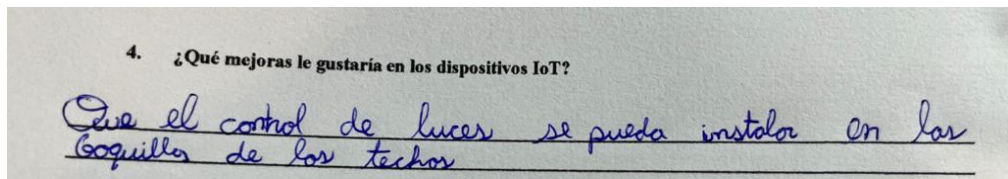 4. ¿Qué mejoras le gustaría en los dispositivos IoT?
Que el control de luces se pueda instalar en las
boquillas de los techos